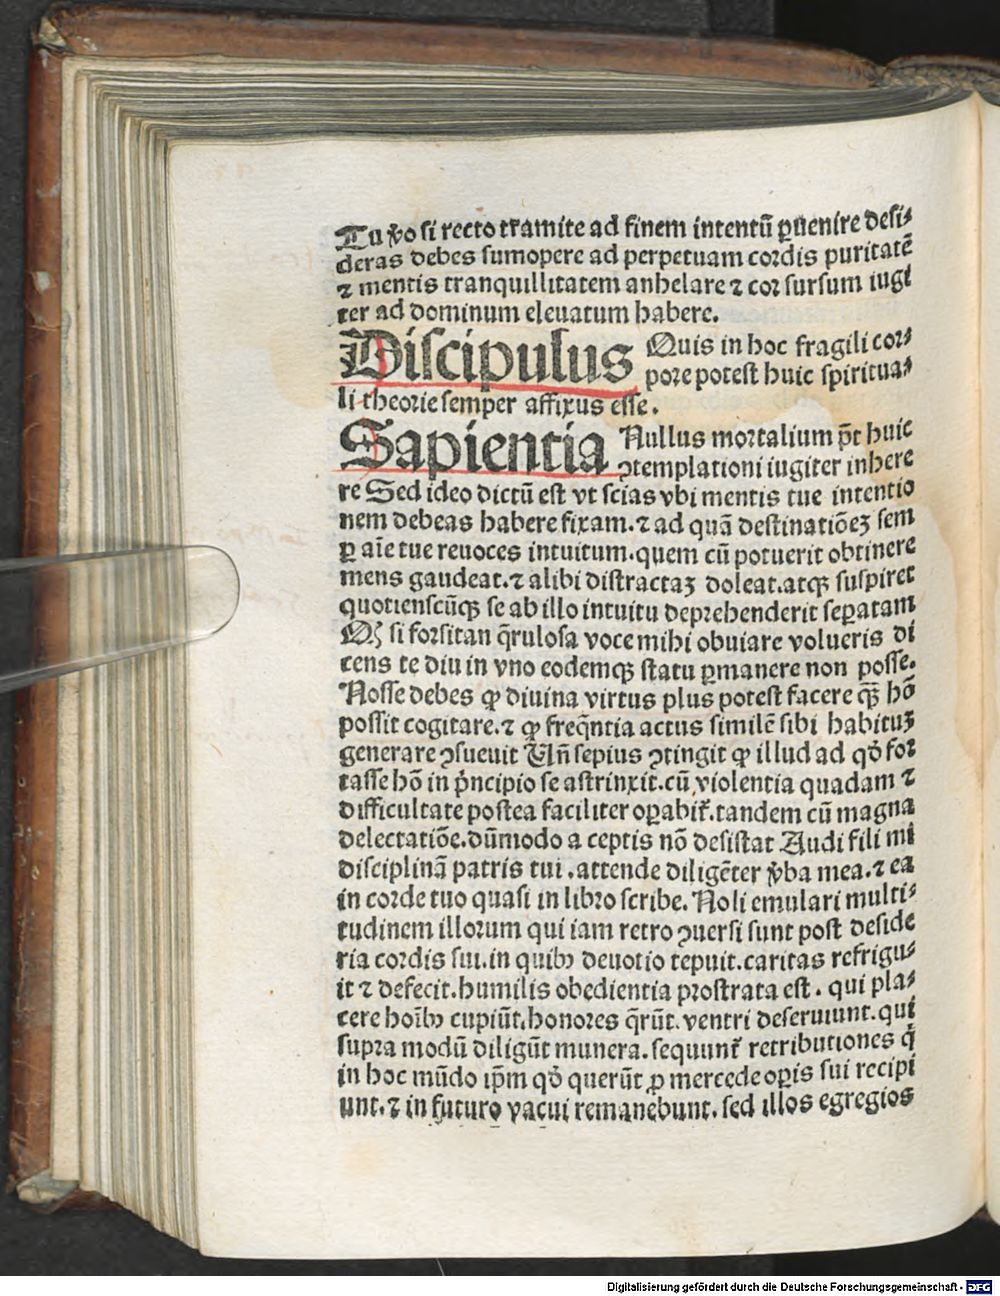 Tu ꝟo si recto tramite ad finem intentū ꝑuenire desi⸗
deras debes sumopere ad perpetuam cordis puritatē
⁊ mentis tranquillitatem anhelare ⁊ cor sursum iugi
ter ad dominum eleuatum habere.
Discipulus Quis in hoc fragili cor⸗
pore potest huic spiritua⸗
li theorie semper affixus esse.
Sapientia Nullus mortalium pōt huic
ꝯtemplationi iugiter inhere
re Sed ideo dictū est vt scias vbi mentis tue intentio
nem debeas habere fixam. ⁊ ad quā destinatiōeꝫ sem
ꝑ aīe tue reuoces intuitum. quem cū potuerit obtinere
mens gaudeat. ⁊ alibi distractaꝫ doleat. atqꝫ suspiret
quotienscūqꝫ se ab illo intuitu deprehenderit seꝑatam
Qꝫ si forsitan q̄rulosa voce mihi obuiare volueris di
cens te diu in vno eodemqꝫ statu ꝑmanere non posse.
Nosse debes ꝙ diuina virtus plus potest facere qꝫ̄ hō
possit cogitare. ⁊ ꝙ freq̄ntia actus similē sibi habituꝫ
generare ꝯsueuit Un̄ sepius ꝯtingit ꝙ illud ad qđ for
tasse hō in pͥncipio se astrinxit. cū violentia quadam ⁊
difficultate postea faciliter oꝑabit᷑. tandem cū magna
delectatiōe. dūmodo a ceptis nō desistat Audi fili mi
disciplinā patris tui. attende diligēter ꝟba mea. ⁊ ea
in corde tuo quasi in libro scribe. Noli emulari multi⸗
tudinem illorum qui iam retro ꝯuersi sunt post deside
ria cordis sui. in quibꝫ deuotio tepuit. caritas refrigu⸗
it ⁊ defecit. humilis obedientia prostrata est. qui pla⸗
cere hoībꝫ cupiūt. honores q̄rūt. ventri deseruiunt. qui
supra modū diligūt munera. sequunt᷑ retributiones q̄
in hoc mūdo ip̄m qđ querūt ꝓ mercede oꝑis sui recipi
unt. ⁊ in futuro vacui remanebunt. sed illos egregios
Digitalisierung gefördert durch die Deutsche Forschungsgemeinschaft - DFG